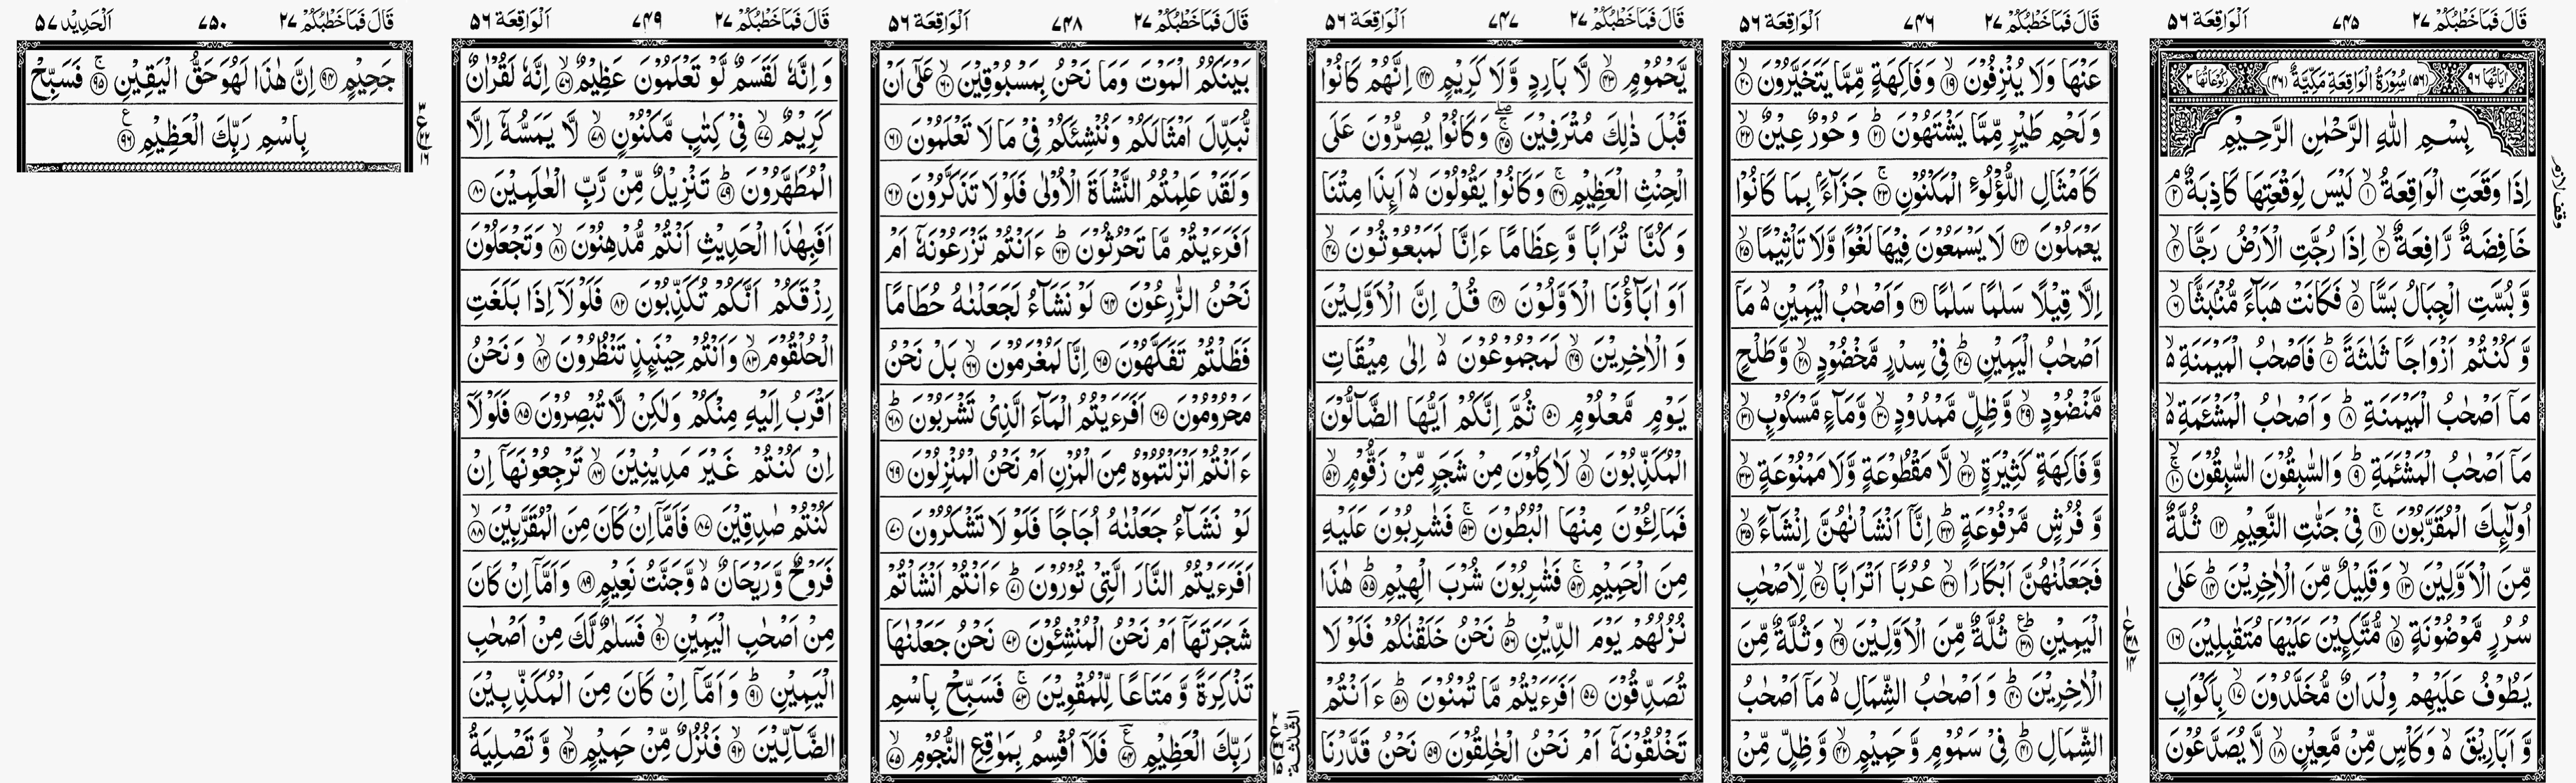 قَالَ فَمَا خَطْبُكُمْ ٢٧ ٧٤٥ اَلْوَاقِعَة ٥٦
اٰيَاتُهَا ٩٦ (٥٦) سُوْرَةُ الْوَاقِعَةِ مَكِّيَّةٌ (٤٦) رُكُوْعَاتُهَا ٣
بِسْمِ اللّٰهِ الرَّحْمٰنِ الرَّحِيْمِ
اِذَا وَقَعَتِ الْوَاقِعَةُ ۙ‏﴿۱﴾ لَيْسَ لِوَقْعَتِهَا كَاذِبَةٌ ۘ‏﴿۲﴾
خَافِضَةٌ رَّافِعَةٌ ۙ‏﴿۳﴾ اِذَا رُجَّتِ الْاَرْضُ رَجًّا ۙ‏﴿۴﴾
وَّبُسَّتِ الْجِبَالُ بَسًّا ۙ‏﴿۵﴾ فَكَانَتْ هَبَآءً مُّنْۢبَثًّا ۙ‏﴿۶﴾
وَّكُنْتُمْ اَزْوَاجًا ثَلٰثَةً ؕ‏﴿۷﴾ فَاَصْحٰبُ الْمَيْمَنَةِ ۙ۬
مَاۤ اَصْحٰبُ الْمَيْمَنَةِ ؕ‏﴿۸﴾ وَاَصْحٰبُ الْمَشْـَٔمَةِ ۙ۬
مَاۤ اَصْحٰبُ الْمَشْـَٔمَةِ ؕ‏﴿۹﴾ وَالسّٰبِقُوْنَ السّٰبِقُوْنَ ۚۙ‏﴿۱۰﴾
اُولٰٓٮِٕكَ الْمُقَرَّبُوْنَ ۚ‏﴿۱۱﴾ فِىْ جَنّٰتِ النَّعِيْمِ ﴿۱۲﴾ ثُلَّةٌ
مِّنَ الْاَوَّلِيْنَ ۙ‏﴿۱۳﴾ وَقَلِيْلٌ مِّنَ الْاٰخِرِيْنَ ؕ‏﴿۱۴﴾ عَلٰى
سُرُرٍ مَّوْضُوْنَةٍ ۙ‏﴿۱۵﴾ مُّتَّكِـِٕيْنَ عَلَيْهَا مُتَقٰبِلِيْنَ ﴿۱۶﴾
يَطُوْفُ عَلَيْهِمْ وِلْدَانٌ مُّخَلَّدُوْنَ ۙ‏﴿۱۷﴾ بِاَكْوَابٍ
وَّاَبَارِيْقَ ۙ۬ وَكَاْسٍ مِّنْ مَّعِيْنٍ ۙ‏﴿۱۸﴾ لَّا يُصَدَّعُوْنَ
قَالَ فَمَا خَطْبُكُمْ ٢٧ ٧٤٦ اَلْوَاقِعَة ٥٦
عَنْهَا وَلَا يُنْزِفُوْنَ ۙ‏﴿۱۹﴾ وَفَاكِهَةٍ مِّمَّا يَتَخَيَّرُوْنَ ۙ‏﴿۲۰﴾
وَلَحْمِ طَيْرٍ مِّمَّا يَشْتَهُوْنَ ؕ‏﴿۲۱﴾ وَحُوْرٌ عِيْنٌ ۙ‏﴿۲۲﴾
كَاَمْثَالِ اللُّؤْلُـؤِ الْمَكْنُوْنِ ۚ‏﴿۲۳﴾ جَزَآءًۢ بِمَا كَانُوْا
يَعْمَلُوْنَ ﴿۲۴﴾ لَا يَسْمَعُوْنَ فِيْهَا لَغْوًا وَّلَا تَاْثِيْمًا ۙ‏﴿۲۵﴾
اِلَّا قِيْلًا سَلٰمًا سَلٰمًا ﴿۲۶﴾ وَاَصْحٰبُ الْيَمِيْنِ ۙ۬ مَاۤ
اَصْحٰبُ الْيَمِيْنِ ؕ‏﴿۲۷﴾ فِىْ سِدْرٍ مَّخْضُوْدٍ ۙ‏﴿۲۸﴾ وَّطَلْحٍ
مَّنْضُوْدٍ ۙ‏﴿۲۹﴾ وَّظِلٍّ مَّمْدُوْدٍ ۙ‏﴿۳۰﴾ وَّمَآءٍ مَّسْكُوْبٍ ۙ‏﴿۳۱﴾
وَّفَاكِهَةٍ كَثِيْرَةٍ ۙ‏﴿۳۲﴾ لَّا مَقْطُوْعَةٍ وَّلَا مَمْنُوْعَةٍ ۙ‏﴿۳۳﴾
وَّفُرُشٍ مَّرْفُوْعَةٍ ؕ‏﴿۳۴﴾ اِنَّاۤ اَنْشَاْنٰهُنَّ اِنْشَآءً ۙ‏﴿۳۵﴾
فَجَعَلْنٰهُنَّ اَبْكَارًا ۙ‏﴿۳۶﴾ عُرُبًا اَتْرَابًا ۙ‏﴿۳۷﴾ لِّاَصْحٰبِ
الْيَمِيْنِ ؕ‏﴿۳۸﴾ ثُلَّةٌ مِّنَ الْاَوَّلِيْنَ ۙ‏﴿۳۹﴾ وَثُلَّةٌ مِّنَ
الْاٰخِرِيْنَ ؕ‏﴿۴۰﴾ وَاَصْحٰبُ الشِّمَالِ ۙ۬ مَاۤ اَصْحٰبُ
الشِّمَالِ ؕ‏﴿۴۱﴾ فِىْ سَمُوْمٍ وَّحَمِيْمٍ ۙ‏﴿۴۲﴾ وَّظِلٍّ مِّنْ
قَالَ فَمَا خَطْبُكُمْ ٢٧ ٧٤٧ اَلْوَاقِعَة ٥٦
يَّحْمُوْمٍ ۙ‏﴿۴۳﴾ لَّا بَارِدٍ وَّلَا كَرِيْمٍ ﴿۴۴﴾ اِنَّهُمْ كَانُوْا
قَبْلَ ذٰلِكَ مُتْرَفِيْنَ ۚۖ‏﴿۴۵﴾ وَكَانُوْا يُصِرُّوْنَ عَلَى
الْحِنْثِ الْعَظِيْمِ ۚ‏﴿۴۶﴾ وَكَانُوْا يَقُوْلُوْنَ ۙ۬ اَٮِٕذَا مِتْنَا
وَكُنَّا تُرَابًا وَّعِظَامًا ءَاِنَّا لَمَبْعُوْثُوْنَ ۙ‏﴿۴۷﴾
اَوَاٰبَآؤُنَا الْاَوَّلُوْنَ ﴿۴۸﴾ قُلْ اِنَّ الْاَوَّلِيْنَ
وَالْاٰخِرِيْنَ ۙ‏﴿۴۹﴾ لَمَجْمُوْعُوْنَ ۙ۬ اِلٰى مِيْقَاتِ
يَوْمٍ مَّعْلُوْمٍ ﴿۵۰﴾ ثُمَّ اِنَّكُمْ اَيُّهَا الضَّآلُّوْنَ
الْمُكَذِّبُوْنَ ۙ‏﴿۵۱﴾ لَاٰكِلُوْنَ مِنْ شَجَرٍ مِّنْ زَقُّوْمٍ ۙ‏﴿۵۲﴾
فَمَالِـُٔوْنَ مِنْهَا الْبُطُوْنَ ۚ‏﴿۵۳﴾ فَشٰرِبُوْنَ عَلَيْهِ
مِنَ الْحَمِيْمِ ۚ‏﴿۵۴﴾ فَشٰرِبُوْنَ شُرْبَ الْهِيْمِ ؕ‏﴿۵۵﴾ هٰذَا
نُزُلُهُمْ يَوْمَ الدِّيْنِ ؕ‏﴿۵۶﴾ نَحْنُ خَلَقْنٰكُمْ فَلَوْلَا
تُصَدِّقُوْنَ ﴿۵۷﴾ اَفَرَءَيْتُمْ مَّا تُمْنُوْنَ ؕ‏﴿۵۸﴾ ءَاَنْتُمْ
تَخْلُقُوْنَهٗۤ اَمْ نَحْنُ الْخٰلِقُوْنَ ﴿۵۹﴾ نَحْنُ قَدَّرْنَا
قَالَ فَمَا خَطْبُكُمْ ٢٧ ٧٤٨ اَلْوَاقِعَة ٥٦
بَيْنَكُمُ الْمَوْتَ وَمَا نَحْنُ بِمَسْبُوْقِيْنَ ۙ‏﴿۶۰﴾ عَلٰٓى اَنْ
نُّبَدِّلَ اَمْثَالَكُمْ وَنُنْشِئَكُمْ فِىْ مَا لَا تَعْلَمُوْنَ ﴿۶۱﴾
وَلَقَدْ عَلِمْتُمُ النَّشْاَةَ الْاُوْلٰى فَلَوْلَا تَذَكَّرُوْنَ ﴿۶۲﴾
اَفَرَءَيْتُمْ مَّا تَحْرُثُوْنَ ؕ‏﴿۶۳﴾ ءَاَنْتُمْ تَزْرَعُوْنَهٗۤ اَمْ
نَحْنُ الزّٰرِعُوْنَ ﴿۶۴﴾ لَوْ نَشَآءُ لَجَعَلْنٰهُ حُطَامًا
فَظَلْتُمْ تَفَكَّهُوْنَ ﴿۶۵﴾ اِنَّا لَمُغْرَمُوْنَ ۙ‏﴿۶۶﴾ بَلْ نَحْنُ
مَحْرُوْمُوْنَ ﴿۶۷﴾ اَفَرَءَيْتُمُ الْمَآءَ الَّذِىْ تَشْرَبُوْنَ ؕ‏﴿۶۸﴾
ءَاَنْتُمْ اَنْزَلْتُمُوْهُ مِنَ الْمُزْنِ اَمْ نَحْنُ الْمُنْزِلُوْنَ ﴿۶۹﴾
لَوْ نَشَآءُ جَعَلْنٰهُ اُجَاجًا فَلَوْلَا تَشْكُرُوْنَ ﴿۷۰﴾
اَفَرَءَيْتُمُ النَّارَ الَّتِىْ تُوْرُوْنَ ؕ‏﴿۷۱﴾ ءَاَنْتُمْ اَنْشَاْتُمْ
شَجَرَتَهَاۤ اَمْ نَحْنُ الْمُنْشِـُٔوْنَ ﴿۷۲﴾ نَحْنُ جَعَلْنٰهَا
تَذْكِرَةً وَّمَتَاعًا لِّلْمُقْوِيْنَ ۚ‏﴿۷۳﴾ فَسَبِّحْ بِاسْمِ
رَبِّكَ الْعَظِيْمِ ﴿۷۴﴾ فَلَاۤ اُقْسِمُ بِمَوٰقِعِ النُّجُوْمِ ۙ‏﴿۷۵﴾
قَالَ فَمَا خَطْبُكُمْ ٢٧ ٧٤٩ اَلْوَاقِعَة ٥٦
وَاِنَّهٗ لَقَسَمٌ لَّوْ تَعْلَمُوْنَ عَظِيْمٌ ۙ‏﴿۷۶﴾ اِنَّهٗ لَقُرْاٰنٌ
كَرِيْمٌ ۙ‏﴿۷۷﴾ فِىْ كِتٰبٍ مَّكْنُوْنٍ ۙ‏﴿۷۸﴾ لَّا يَمَسُّهٗۤ اِلَّا
الْمُطَهَّرُوْنَ ؕ‏﴿۷۹﴾ تَنْزِيْلٌ مِّنْ رَّبِّ الْعٰلَمِيْنَ ﴿۸۰﴾
اَفَبِهٰذَا الْحَدِيْثِ اَنْتُمْ مُّدْهِنُوْنَ ۙ‏﴿۸۱﴾ وَتَجْعَلُوْنَ
رِزْقَكُمْ اَنَّكُمْ تُكَذِّبُوْنَ ﴿۸۲﴾ فَلَوْلَاۤ اِذَا بَلَغَتِ
الْحُلْقُوْمَ ۙ‏﴿۸۳﴾ وَاَنْتُمْ حِيْنَٮِٕذٍ تَنْظُرُوْنَ ۙ‏﴿۸۴﴾ وَنَحْنُ
اَقْرَبُ اِلَيْهِ مِنْكُمْ وَلٰكِنْ لَّا تُبْصِرُوْنَ ﴿۸۵﴾ فَلَوْلَاۤ
اِنْ كُنْتُمْ غَيْرَ مَدِيْنِيْنَ ۙ‏﴿۸۶﴾ تَرْجِعُوْنَهَاۤ اِنْ
كُنْتُمْ صٰدِقِيْنَ ﴿۸۷﴾ فَاَمَّاۤ اِنْ كَانَ مِنَ الْمُقَرَّبِيْنَ ۙ‏﴿۸۸﴾
فَرَوْحٌ وَّرَيْحَانٌ ۙ۬ وَّجَنَّتُ نَعِيْمٍ ﴿۸۹﴾ وَاَمَّاۤ اِنْ كَانَ
مِنْ اَصْحٰبِ الْيَمِيْنِ ۙ‏﴿۹۰﴾ فَسَلٰمٌ لَّكَ مِنْ اَصْحٰبِ
الْيَمِيْنِ ؕ‏﴿۹۱﴾ وَاَمَّاۤ اِنْ كَانَ مِنَ الْمُكَذِّبِيْنَ
الضَّآلِّيْنَ ۙ‏﴿۹۲﴾ فَنُزُلٌ مِّنْ حَمِيْمٍ ۙ‏﴿۹۳﴾ وَّتَصْلِيَةُ
قَالَ فَمَا خَطْبُكُمْ ٢٧ ٧٥٠ اَلْحَدِيْد ٥٧
جَحِيْمٍ ﴿۹۴﴾ اِنَّ هٰذَا لَهُوَ حَقُّ الْيَقِيْنِ ۚ‏﴿۹۵﴾ فَسَبِّحْ
بِاسْمِ رَبِّكَ الْعَظِيْمِ ﴿۹۶﴾